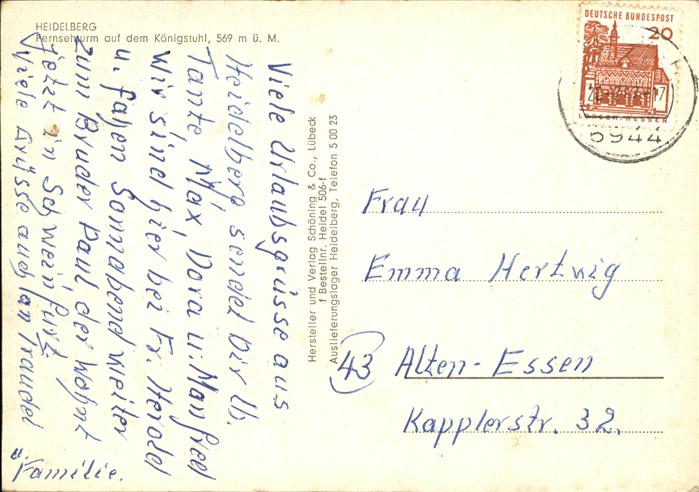 HEIDELBERG
Fernsehturm auf dem Königstuhl, 569 m ü. M.
Viele Urlaubsgrüsse aus
Heidelberg sendet Dir lb.
Tante, Max, Dora u. Manfred
Wir sind hier bei Fr. Herold
u. fahren Sonnabend weiter
zum Bruder Paul der wohnt
jetzt in Schweinfurt
Viele Grüsse auch an Traudel
u. Familie.
Hersteller und Verlag Schöning & Co., Lübeck
f Bestellnr. Heidel 506-f
Auslieferungslager Heidelberg, Telefon 5 00 23
DEUTSCHE BUNDESPOST
20
LORSCH/HESSEN
5944
Frau
Emma Hertwig
43 Alten-Essen
Kapplerstr. 32.